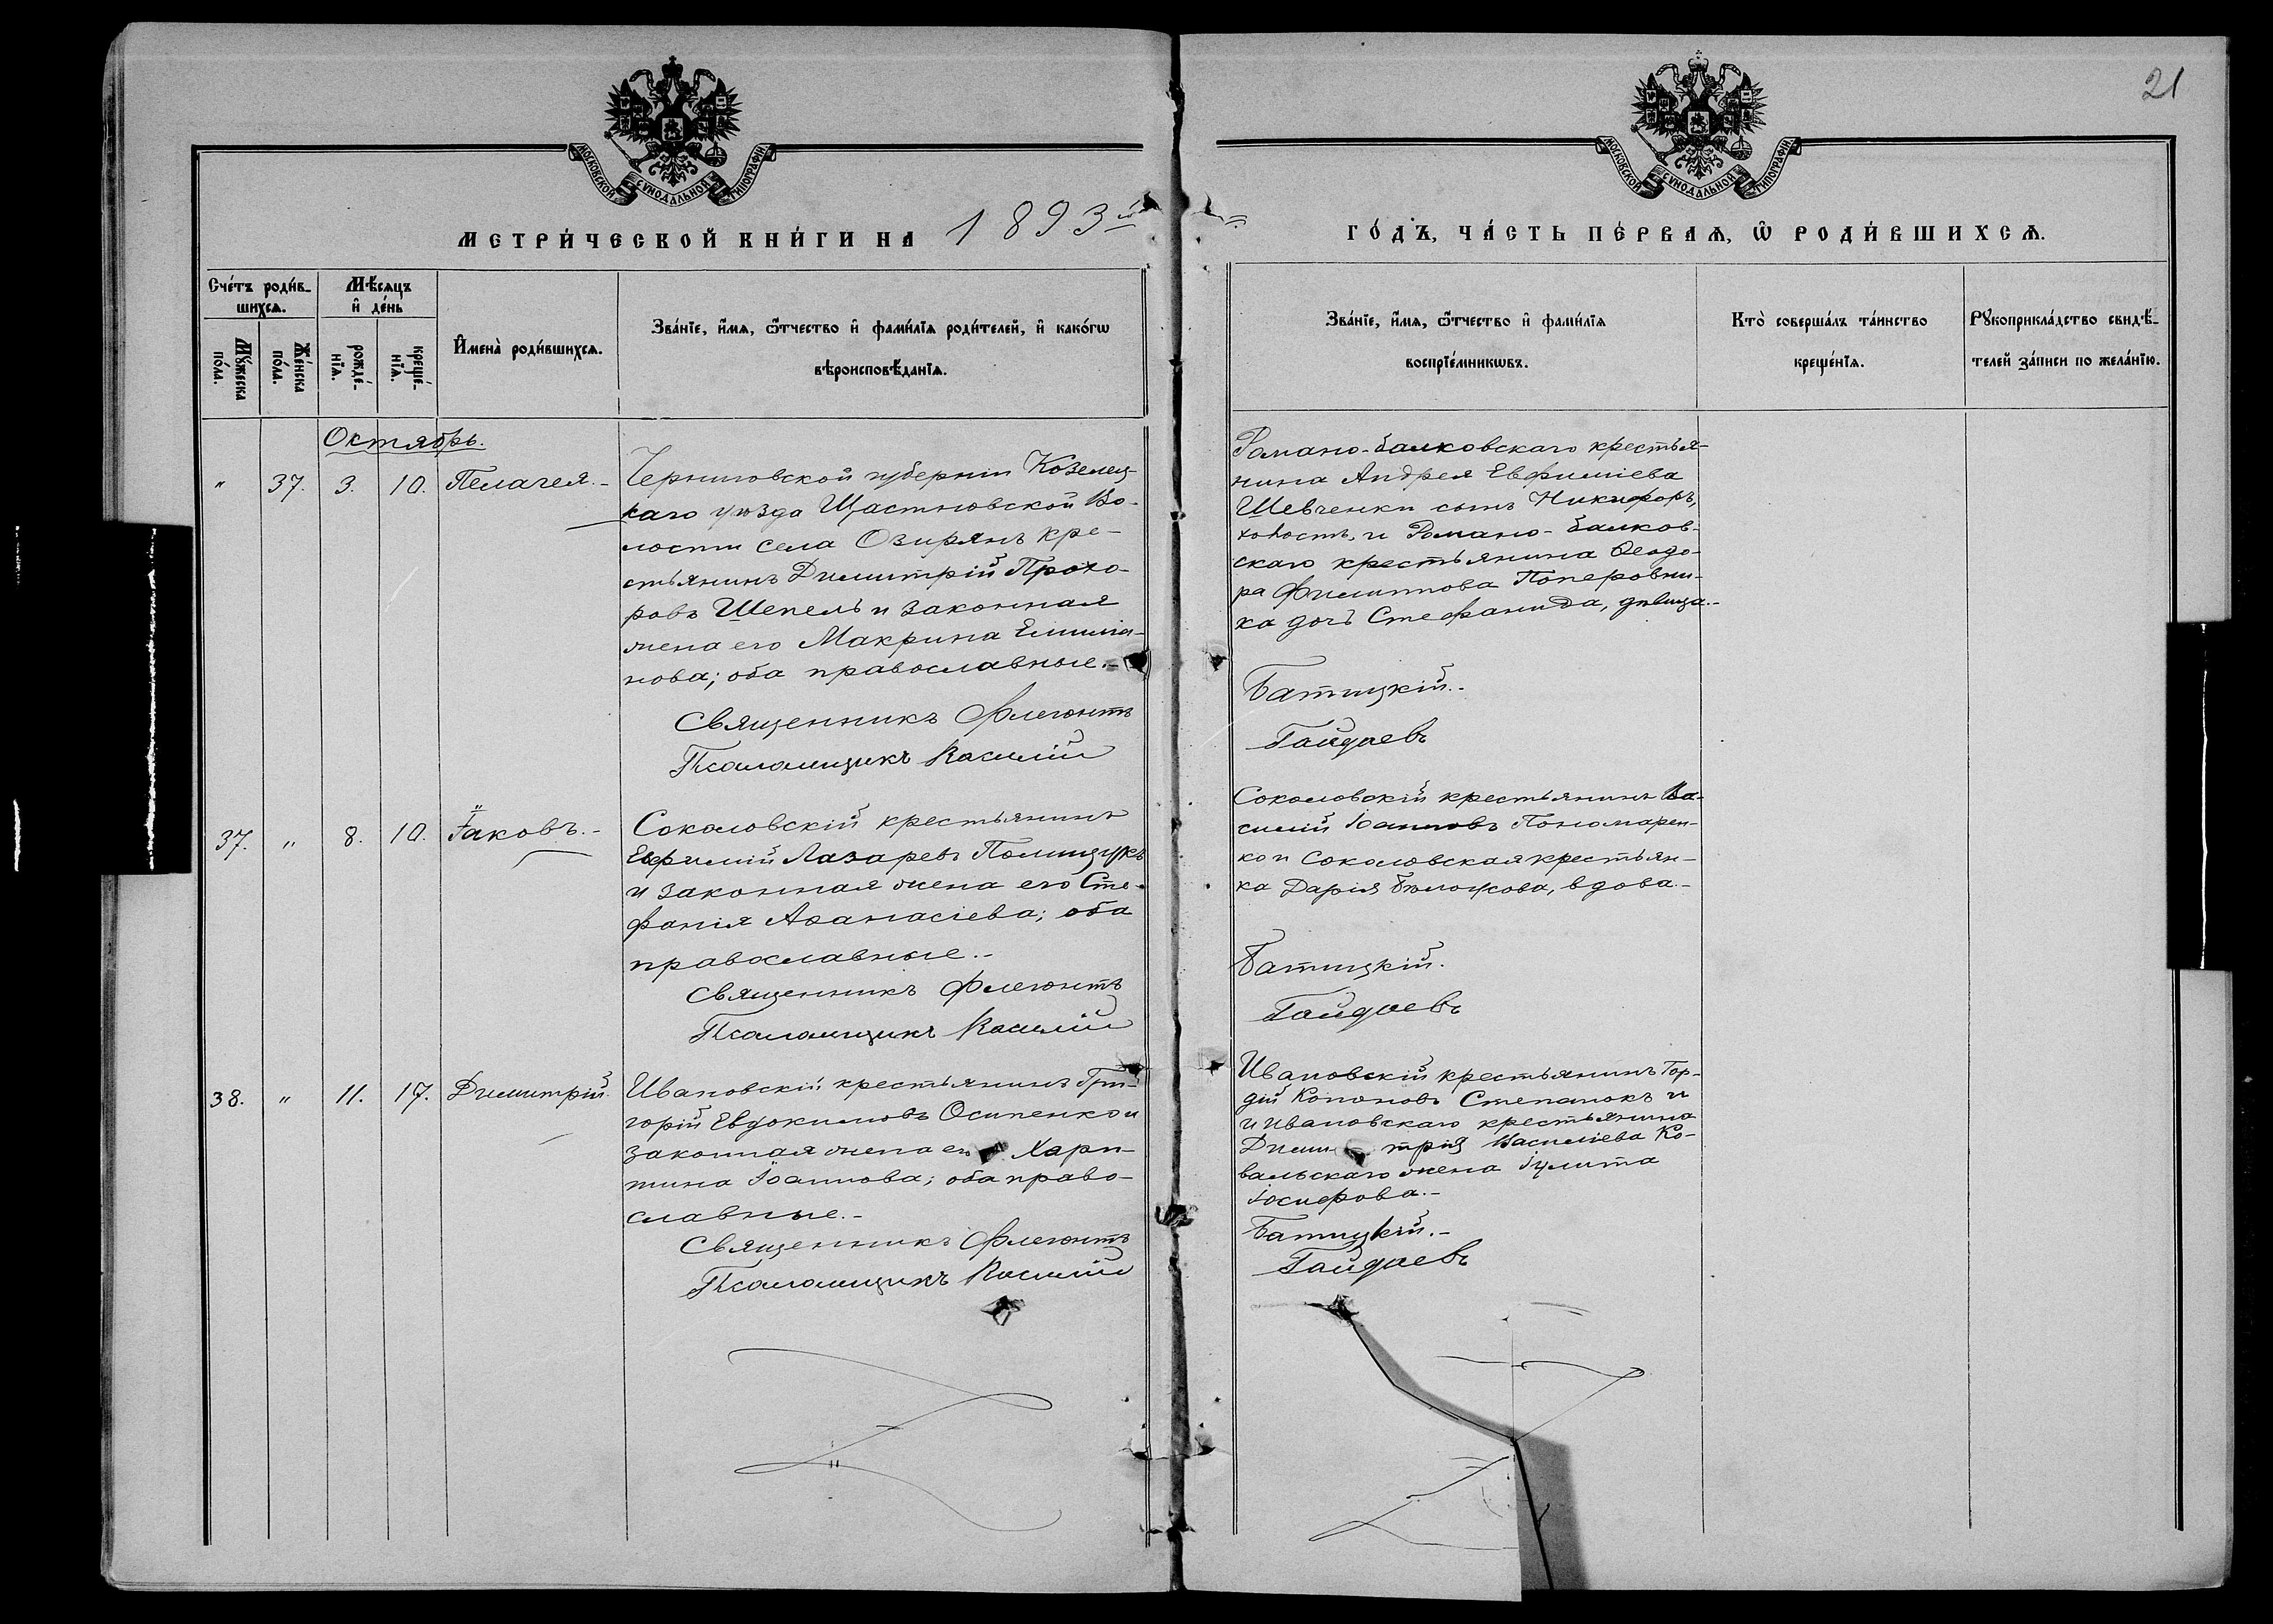 21
МОСКОВСКОЙ СѴНОДАЛЬНОЙ ТИПОГРАФІИ
МОСКОВСКОЙ СѴНОДАЛЬНОЙ ТИПОГРАФІИ
МЕТРИ́ЧЕСКОЙ КНИ́ГИ НА 1893й
ГО́ДЪ, ЧА́СТЬ ПЕ́РВАѦ, Ѡ҆ РОДИ́ВШИХСѦ.
Сче́тъ роди́в-
шихсѧ.
Мѣ́сѧцъ
и҆ де́нь
Мꙋ́жеска
по́ла.
Же́нска
по́ла.
рожде́-
нїѧ.
креще́-
нїѧ.
И҆мена̀ роди́вшихсѧ.
Зва́нїе, и҆́мѧ, ѻ҆́тчество и҆ фамі́лїѧ роди́телей, и҆ како́гѡ
вѣроисповѣ́данїѧ.
Зва́нїе, и҆́мѧ, ѻ҆́тчество и҆ фамі́лїѧ
воспрїе́мникѡвъ.
Кто̀ соверша́лъ та́инство
креще́нїѧ.
Рꙋкоприкла́дство свидѣ́-
телей за́писи по жела́нїю.
Октябрь.
" 37. 3. 10. Пелагея.-
Черниговской губерніи Козелец-
каго уѣзда Щастновской Во-
лости села Озирянъ кре-
стьянинъ Димитрій Прохо-
ровъ Шепель и законная
жена его Макрина Емилiа-
нова; оба православные.-
Священникъ Флегонтъ
Псаломщикъ Василій
Романо-балковскаго крестья-
нина Андрея Евфиміева
Шевченки сынъ Никифоръ,
холостъ, и Романо-балков-
скаго крестьянина Ѳеодо-
ра Филиппова Поперовни-
ка дочь Стефанида, дѣвица.-
Батицкій.-
Гайдаевъ
37. " 8. 10. Іаковъ.-
Соколовскій крестьянинъ
Евфимій Лазаревъ Полищукъ
и законная жена его Сте-
фанія Аѳанасіева; оба
православные.-
Священникъ Флегонтъ
Псаломщикъ Василій
Соколовскій крестьянинъ Ва-
силій Іоанновъ Пономарен-
ко и Соколовская крестьян-
ка Дарія Бѣлоусова, вдова.-
Батицкій.
Гайдаевъ
38. " 11. 17. Димитрій.
Ивановскій крестьянинъ Гри-
горій Евдокимовъ Осипенко и
законная жена его Хари-
тина Іоаннова; оба право-
славные.-
Священникъ Флегонтъ
Псаломщикъ Василій
Ивановскій крестьянинъ Гор-
дій Кононовъ Степанокъ и
и Ивановскаго крестьянина
Димитрія Василіева Ко-
вальскаго жена Іулита
Іосифова.-
Батицкій.-
Гайдаевъ